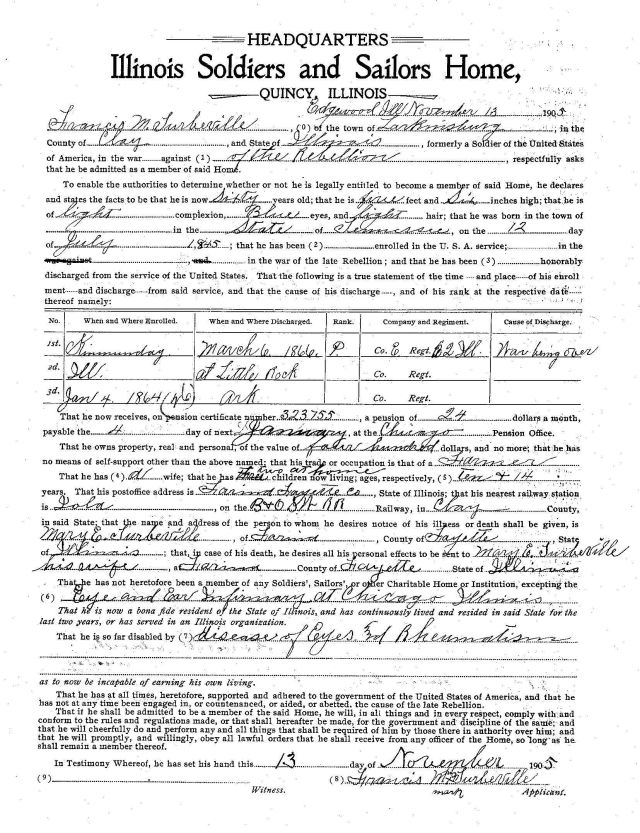 HEADQUARTERS
Illinois Soldiers and Sailors Home,
QUINCY, ILLINOIS
Edgewood Ill November 13 1905
Francis M. Turberville, (0) of the town of Larkinsburg, in the
County of Clay, and State of Illinois, formerly a Soldier of the United States
of America, in the war against (1) of the Rebellion, respectfully asks
that he be admitted as a member of said Home.
To enable the authorities to determine whether or not he is legally entitled to become a member of said Home, he declares
and states the facts to be that he is now Sixty years old; that he is five feet and Six inches high; that he is
of light complexion, Blue eyes, and light hair; that he was born in the town of
in the State of Tennessee, on the 12 day
of July 1845; that he has been (2) enrolled in the U. S. A. service; in the
war against, and in the war of the late Rebellion; and that he has been (3) honorably
discharged from the service of the United States. That the following is a true statement of the time and place of his enroll
ment and discharge from said service, and that the cause of his discharge, and of his rank at the respective date
thereof namely:
No. When and Where Enrolled. When and Where Discharged. Rank. Company and Regiment. Cause of Discharge.
1st. Kinmunday March 6, 1866. P. Co. E Regt. 62 Ill. War being over
2d. Ill. at Little Rock Co. Regt.
3d. Jan 4. 1864 Ark Co. Regt.
That he now receives, on pension certificate number 323755, a pension of 24 dollars a month,
payable the 4 day of next January, at the Chicago Pension Office.
That he owns property, real and personal, of the value of four hundred dollars, and no more; that he has
no means of self-support other than the above named; that his trade or occupation is that of a Farmer
That he has (4) a wife; that he has two at home children now living; ages, respectively, (5) ten & 14
years. That his postoffice address is Farina Fayette Co, State of Illinois; that his nearest railway station
is Iola, on the B&O SW RR Railway, in Clay County,
in said State; that the name and address of the person to whom he desires notice of his illness or death shall be given, is
Mary E. Turberville, of Farina, County of Fayette, State
of Illinois; that, in case of his death, he desires all his personal effects to be sent to Mary E. Turberville
his wife, at Farina County of Fayette State of Illinois
That he has not heretofore been a member of any Soldiers', Sailors', or other Charitable Home or Institution, excepting the
(6) Eye and Ear Infirmary at Chicago Illinois
That he is now a bona fide resident of the State of Illinois, and has continuously lived and resided in said State for the
last two years, or has served in an Illinois organization.
That he is so far disabled by (7) disease of Eyes and Rheumatism
as to now be incapable of earning his own living.
That he has at all times, heretofore, supported and adhered to the government of the United States of America, and that he
has not at any time been engaged in, or countenanced, or aided, or abetted, the cause of the late Rebellion.
That if he shall be admitted to be a member of the said Home, he will, in all things and in every respect, comply with and
conform to the rules and regulations made, or that shall hereafter be made, for the government and discipline of the same; and
that he will cheerfully do and perform any and all things that shall be required of him by those there in authority over him; and
that he will promptly, and willingly, obey all lawful orders that he shall receive from any officer of the Home, so long as he
shall remain a member thereof.
In Testimony Whereof, he has set his hand this 13 day of November 1905
(9) (8) Francis M. Turberville
Witness. mark Applicant.